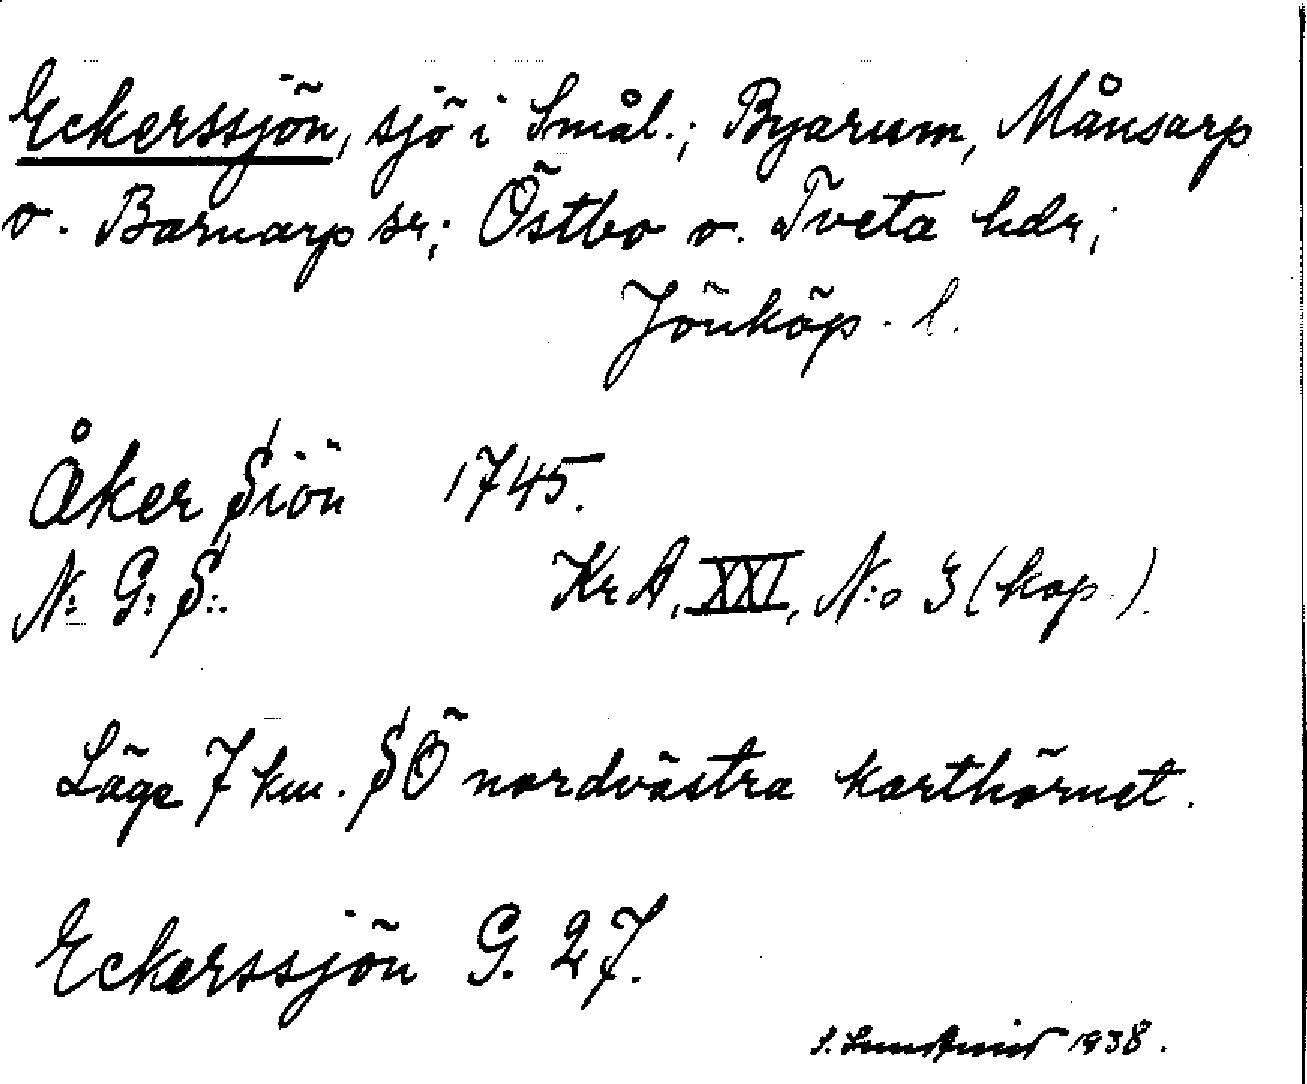 Eckerssjön, sjö i Smål.; Byarum, Månsarp
o. Barnarp sr; Östbo o. Tveta hdr;
Jönköp. l.
Åker Siön 1745.
N: G: S:. KrA, XXI, N:o 3 (kop.).
Läge 7 km. SÖ nordvästra karthörnet.
Eckerssjön G. 27.
1938.